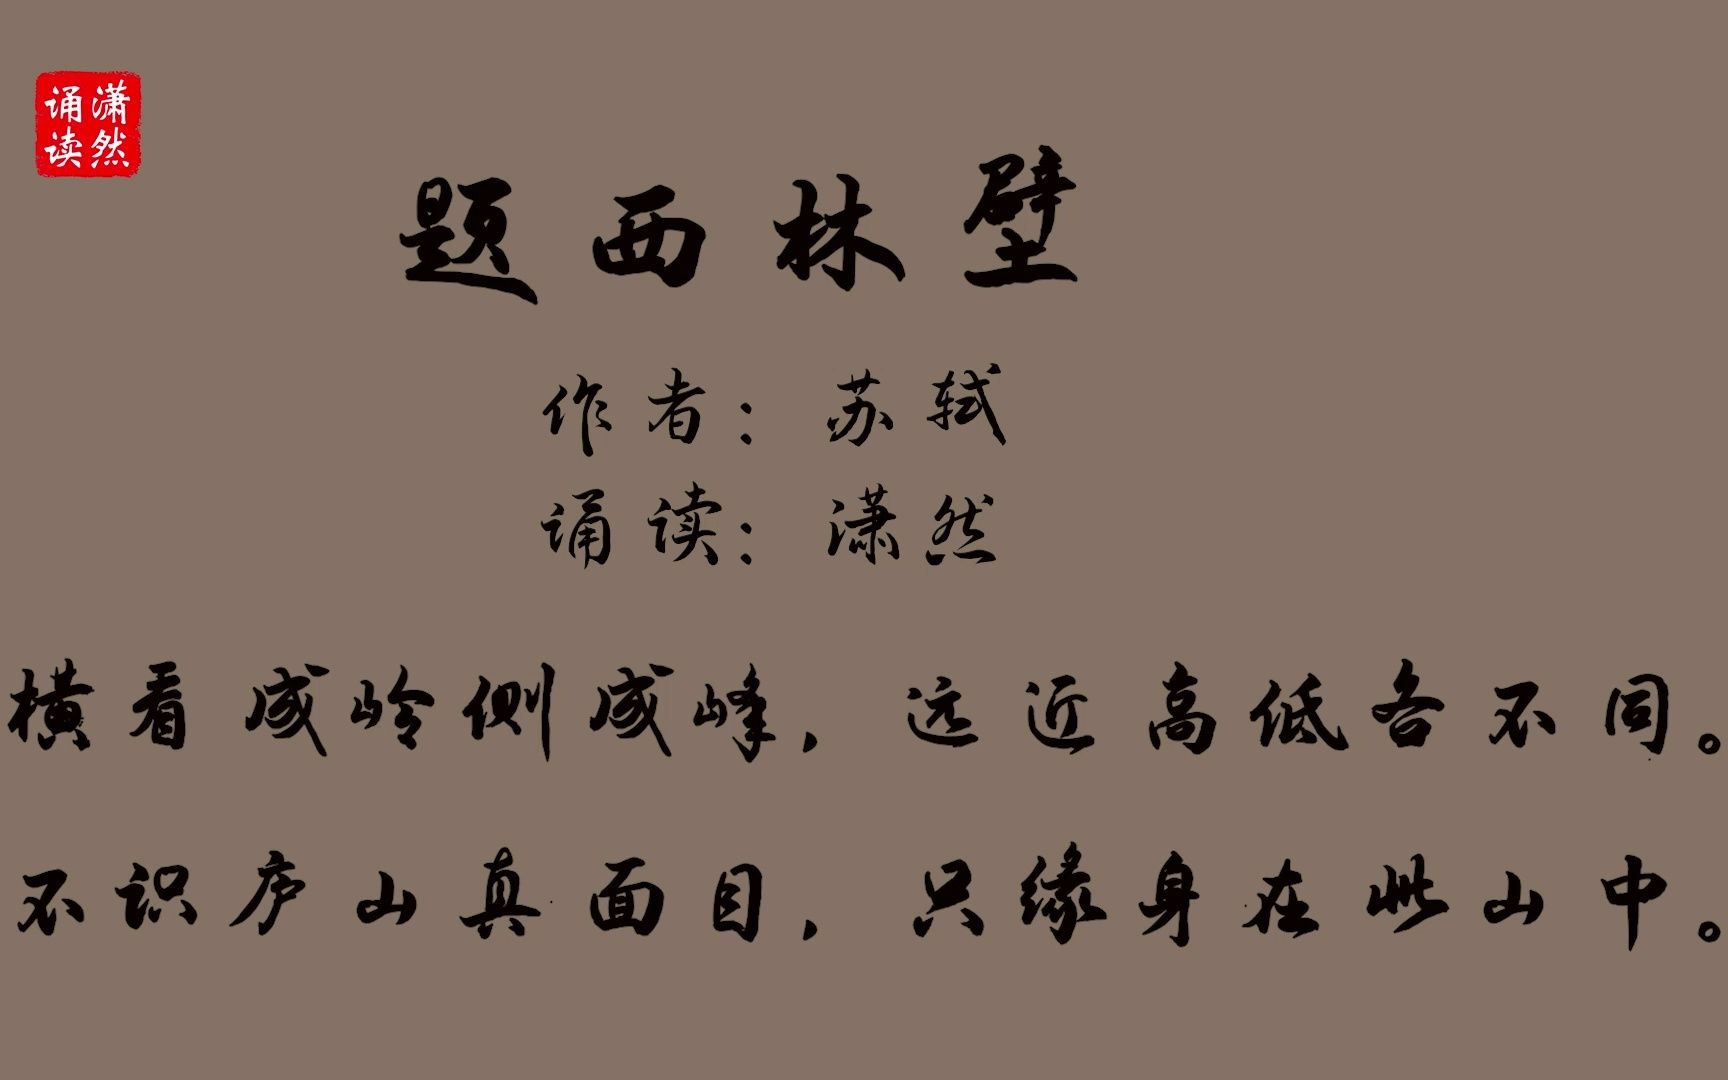 潇然
诵读
题西林壁
作者：苏轼
诵读：潇然
横看成岭侧成峰，远近高低各不同。
不识庐山真面目，只缘身在此山中。